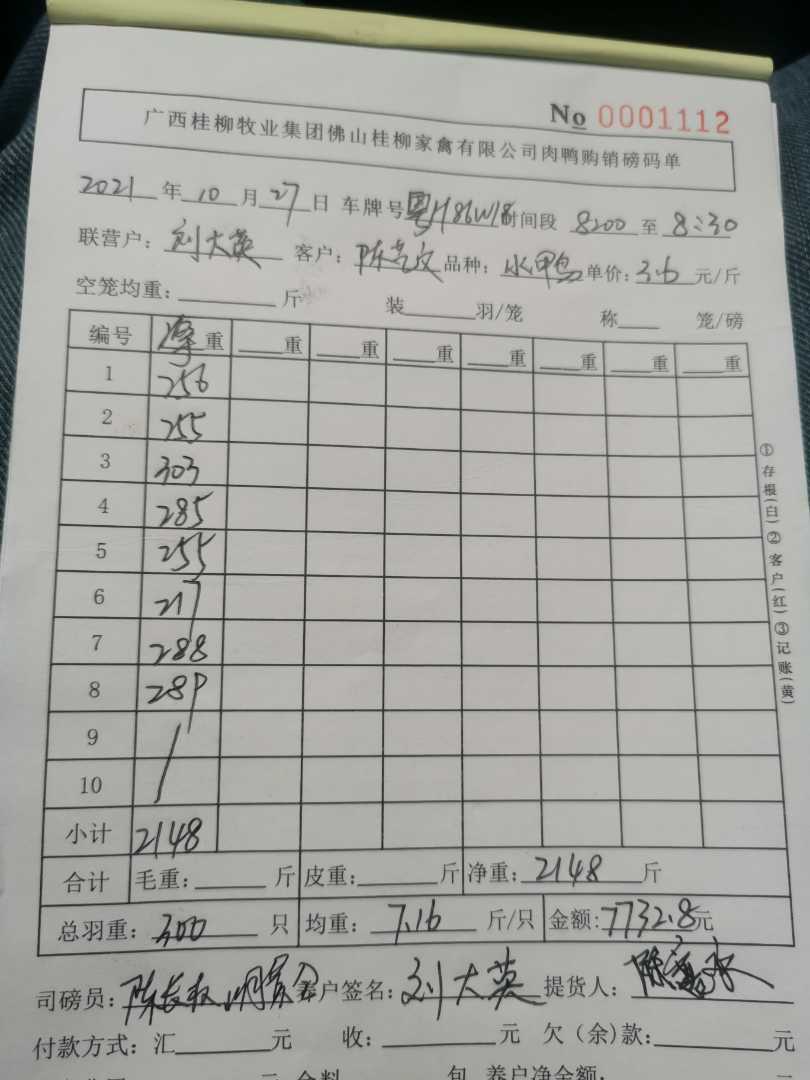 No 0001112
广西桂柳牧业集团佛山桂柳家禽有限公司肉鸭购销磅码单
2021年10月27日 车牌号粤H86W18时间段 8:00 至 8:30
联营户: 刘大英 客户: 陈 品种: 水鸭 单价: 3.6 元/斤
空笼均重: 斤 装 羽/笼 称 笼/磅
编号 净重 重 重 重 重 重 重 重
1 256
2 255
3 303
4 285
5 255
6 217
7 288
8 289
9
10
小计 2148
合计 毛重: 斤 皮重: 斤 净重: 2148 斤
总羽重: 300 只 均重: 7.16 斤/只 金额: 7732.8元
司磅员: 养户签名: 刘大英 提货人:
付款方式: 汇 元 收: 元 欠(余)款: 元
养户净金额:
①存根(白)②客户(红)③记账(黄)